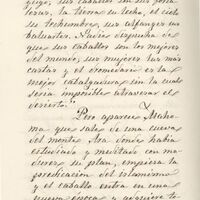 sus caballos son sus
la tierra su lecho, el cielo
su techumbre, sus alfanges sus
baluartes. Nadie despunta de
que sus caballos son los mejores
del mundo, sus mugeres las mas
castas y el dromedario es la
mejor cabalgadura sin la cual
seria imposible atravesar el
desierto."
Pero aparece Maho
ma que sale de una cueva
del monte Ara donde habia
estudiado y meditado con ma
durez su plan, empieza la
predicacion del islamismo
y el caballo entra en una
nueva época y adquiere